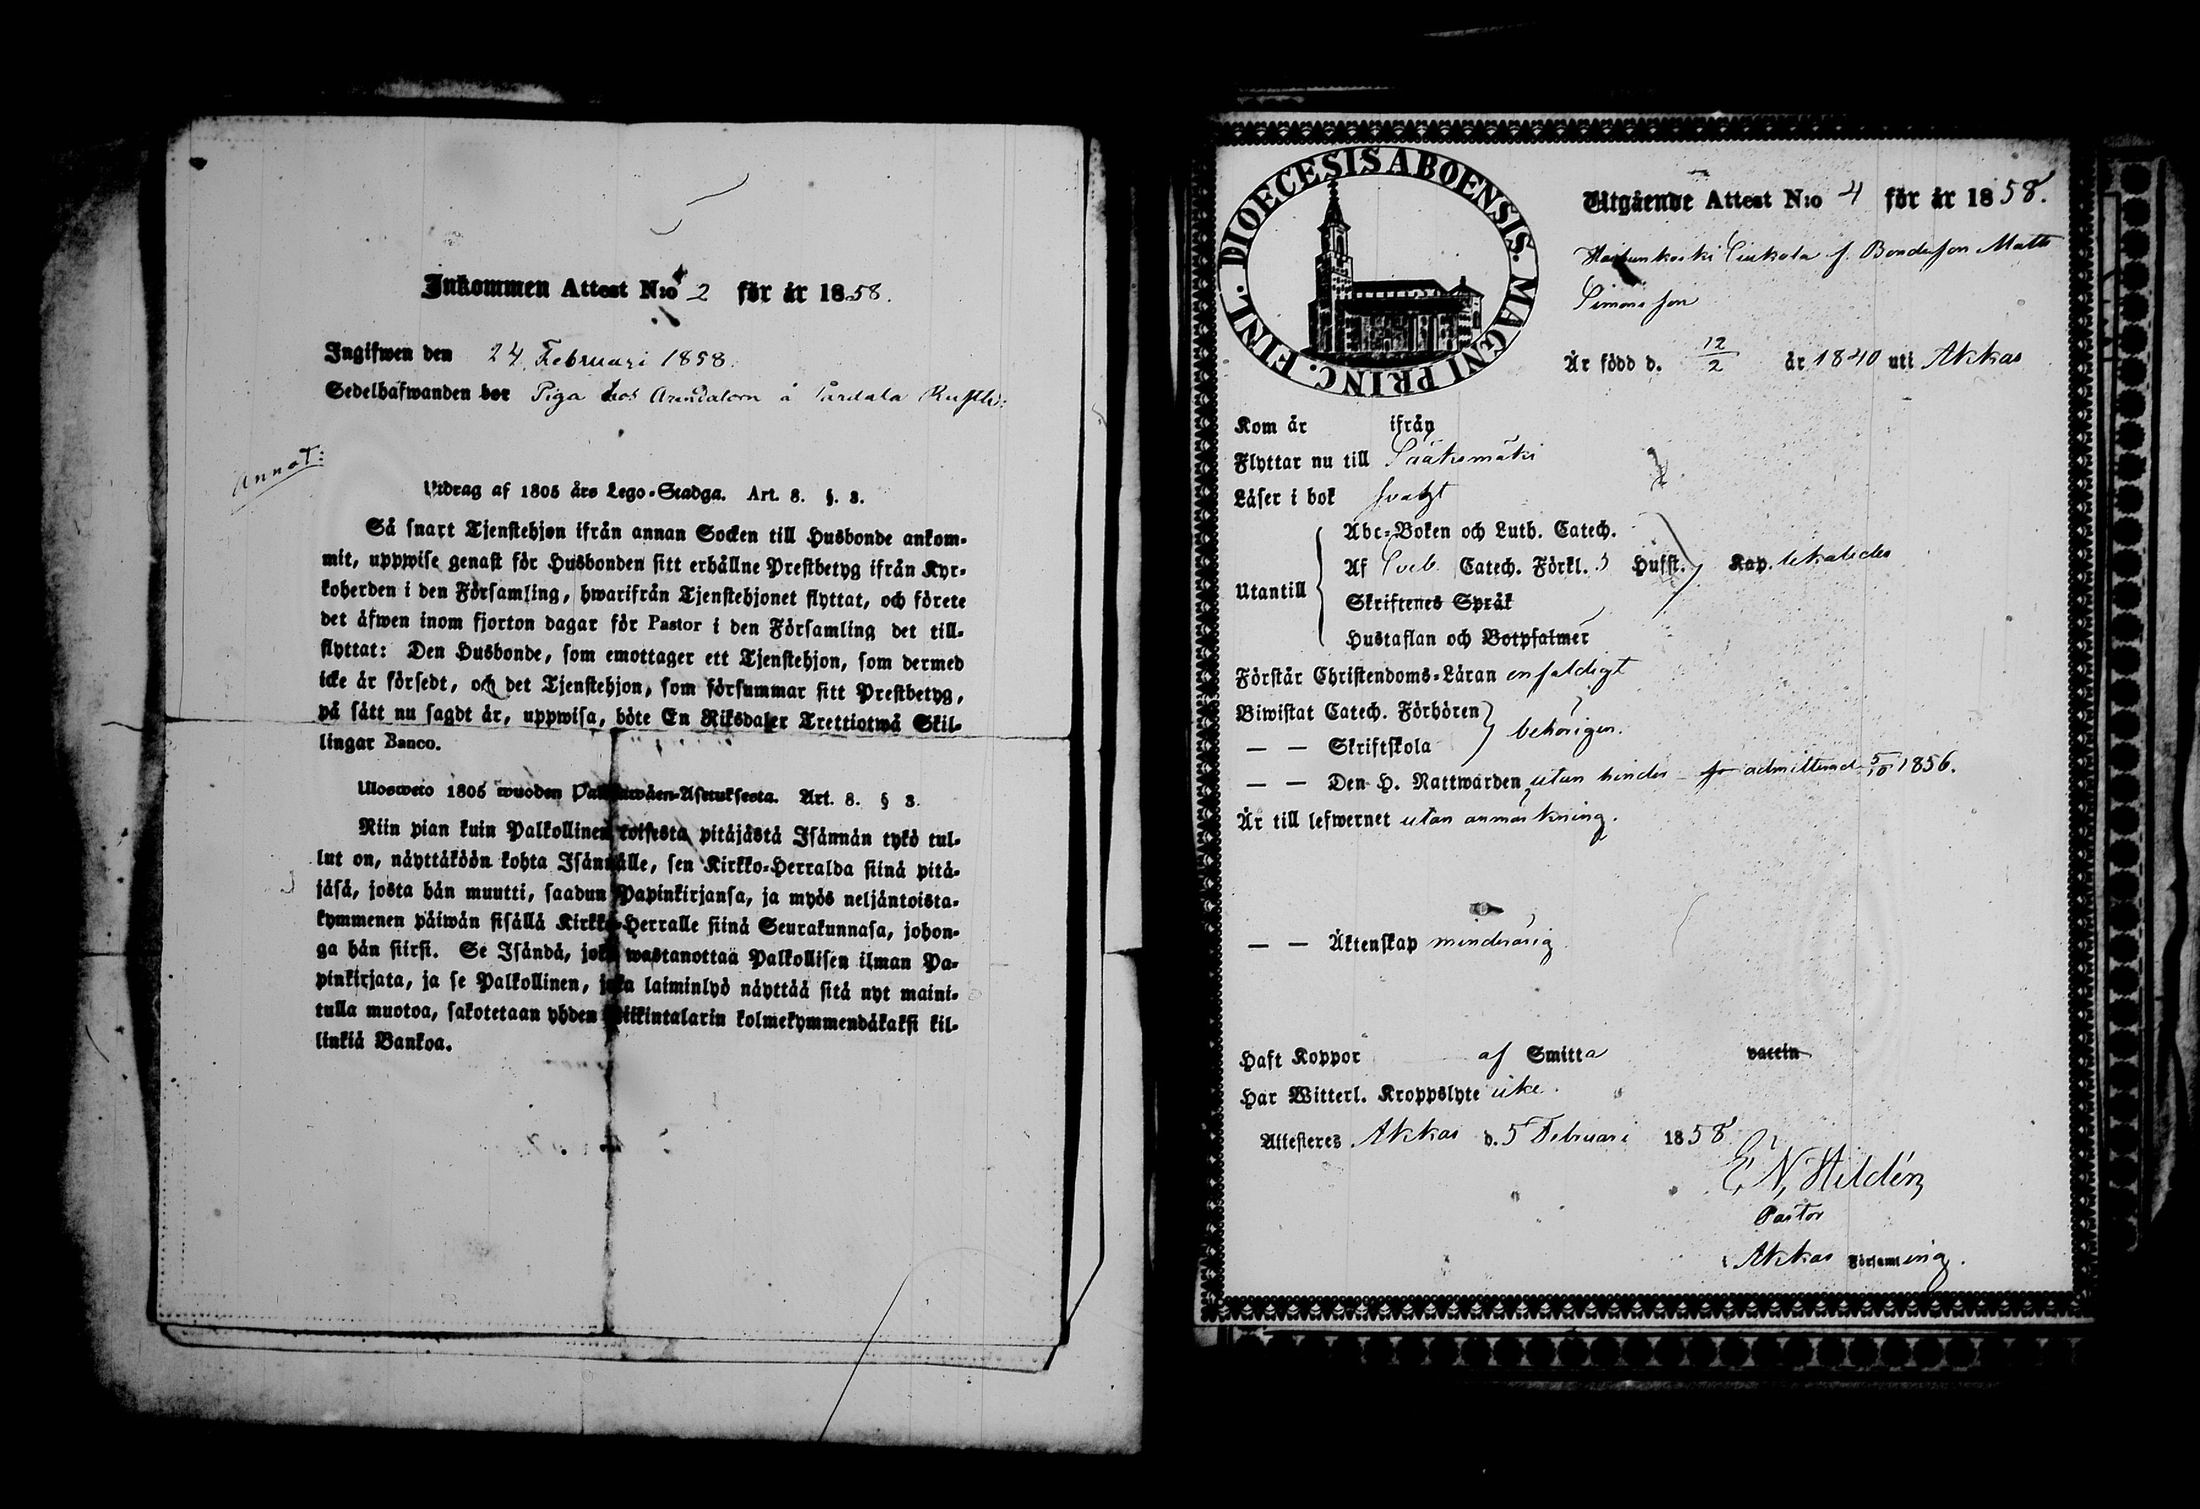 Inkommen Attest N:o 2 för år 1858.
Ingifwen den 24 Februari 1858.
Sedelhafwanden bor Piga hos Arendatorn å
Annot:
Utdrag af 1805 års Lego-Stadga. Art. 8. §. 3.
Så snart Tjenstehjon ifrån annan Socken till Husbonde ankom-
mit, uppwise genast för Husbonden sitt erhållne Prestbetyg ifrån Kyr-
koherden i den Församling, hwarifrån Tjenstehjonet flyttat, och förete
det äfwen inom fjorton dagar för Pastor i den Församling det till-
flyttat: Den Husbonde, som emottager ett Tjenstehjon, som dermed
icke är försedt, och det Tjenstehjon, som försummar sitt Prestbetyg,
på sätt nu sagdt är, uppwisa, böte En Riksdaler Trettiotwå Skil-
lingar Banco.
Ulosweto 1805 wuoden Palkkawäen-Asetuksesta. Art. 8. § 3.
Niin pian kuin Palkollinen toisesta pitäjästä Isännän tykö tul-
lut on, näyttäköön kohta Isännälle, sen Kirkko-Herralda siinä pitä-
jäsä, josta hän muutti, saadun Papinkirjansa, ja myös neljäntoista-
kymmenen päiwän sisällä Kirkko-Herralle siinä Seurakunnasa, johon-
ga hän siirsi. Se Isändä, joka wastanottaa Palkollisen ilman Pa-
pinkirjata, ja se Palkollinen, joka laiminlyö näyttää sitä nyt maini-
tulla muotoa, sakotetaan yhden Riikintalarin kolmekymmendäkaksi kil-
linkiä Bankoa.
DIOECESIS ABOENSIS. MAGNI PRINC. FINL.
Utgående Attest N:o 4 för år 1858.
f. Bondeson Matts
Simonsson
Är född d. 12/2 år 1840 uti Akkas
Kom år ifrån
Flyttar nu till Sääksmäki
Läser i bok svagt
Utantill
Abc-Boken och Luth. Catech.
Af Sveb. Catech. Förkl. 5 Hufst. Kap. likaledes
Skriftenes Språk
Hustaflan och Botpsalmer
Förstår Christendoms-Läran enfaldigt
Biwistat Catech. Förhören
— — Skriftskola behörigen.
— — Den H. Nattwarden utan hinder admitterad 5/10 1856.
Är till lefwernet utan anmärkning.
— — Äktenskap minderårig
Haft Koppor af Smitta vaccin
Har Witterl. Kroppslyte icke.
Attesteres Akkas d. 5 Februari 1858
E, N, Hildén,
Pastor
i Akkas Församling.